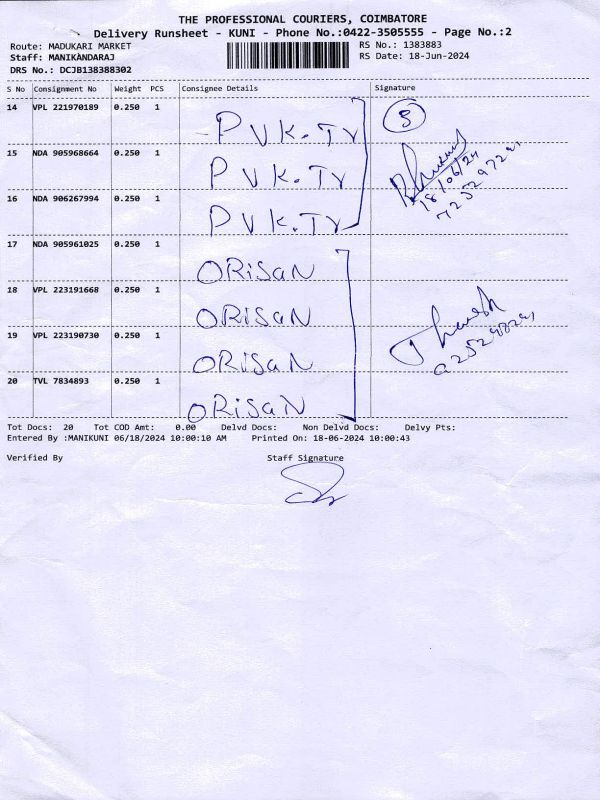 THE PROFESSIONAL COURIERS, COIMBATORE
Delivery Runsheet - KUNI - Phone No.:0422-3505555 - Page No.:2
Route: MADUKARI MARKET RS No.: 1383883
Staff: MANIKANDARAJ RS Date: 18-Jun-2024
DRS No.: DCJB138388302
S No Consignment No Weight PCS Consignee Details Signature
14 VPL 221970189 0.250 1 PVK.Tr 3
15 NDA 905968664 0.250 1 PVK.Tr
18/06/24
16 NDA 906267994 0.250 1 PVK.Tr
17 NDA 905961025 0.250 1 ORiSAN
18 VPL 223191668 0.250 1 ORiSAN
19 VPL 223190730 0.250 1 ORiSAN
20 TVL 7834893 0.250 1 ORiSAN
Tot Docs: 20 Tot COD Amt: 0.00 Delvd Docs: Non Delvd Docs: Delvy Pts:
Entered By :MANIKUNI 06/18/2024 10:00:10 AM Printed On: 18-06-2024 10:00:43
Verified By Staff Signature